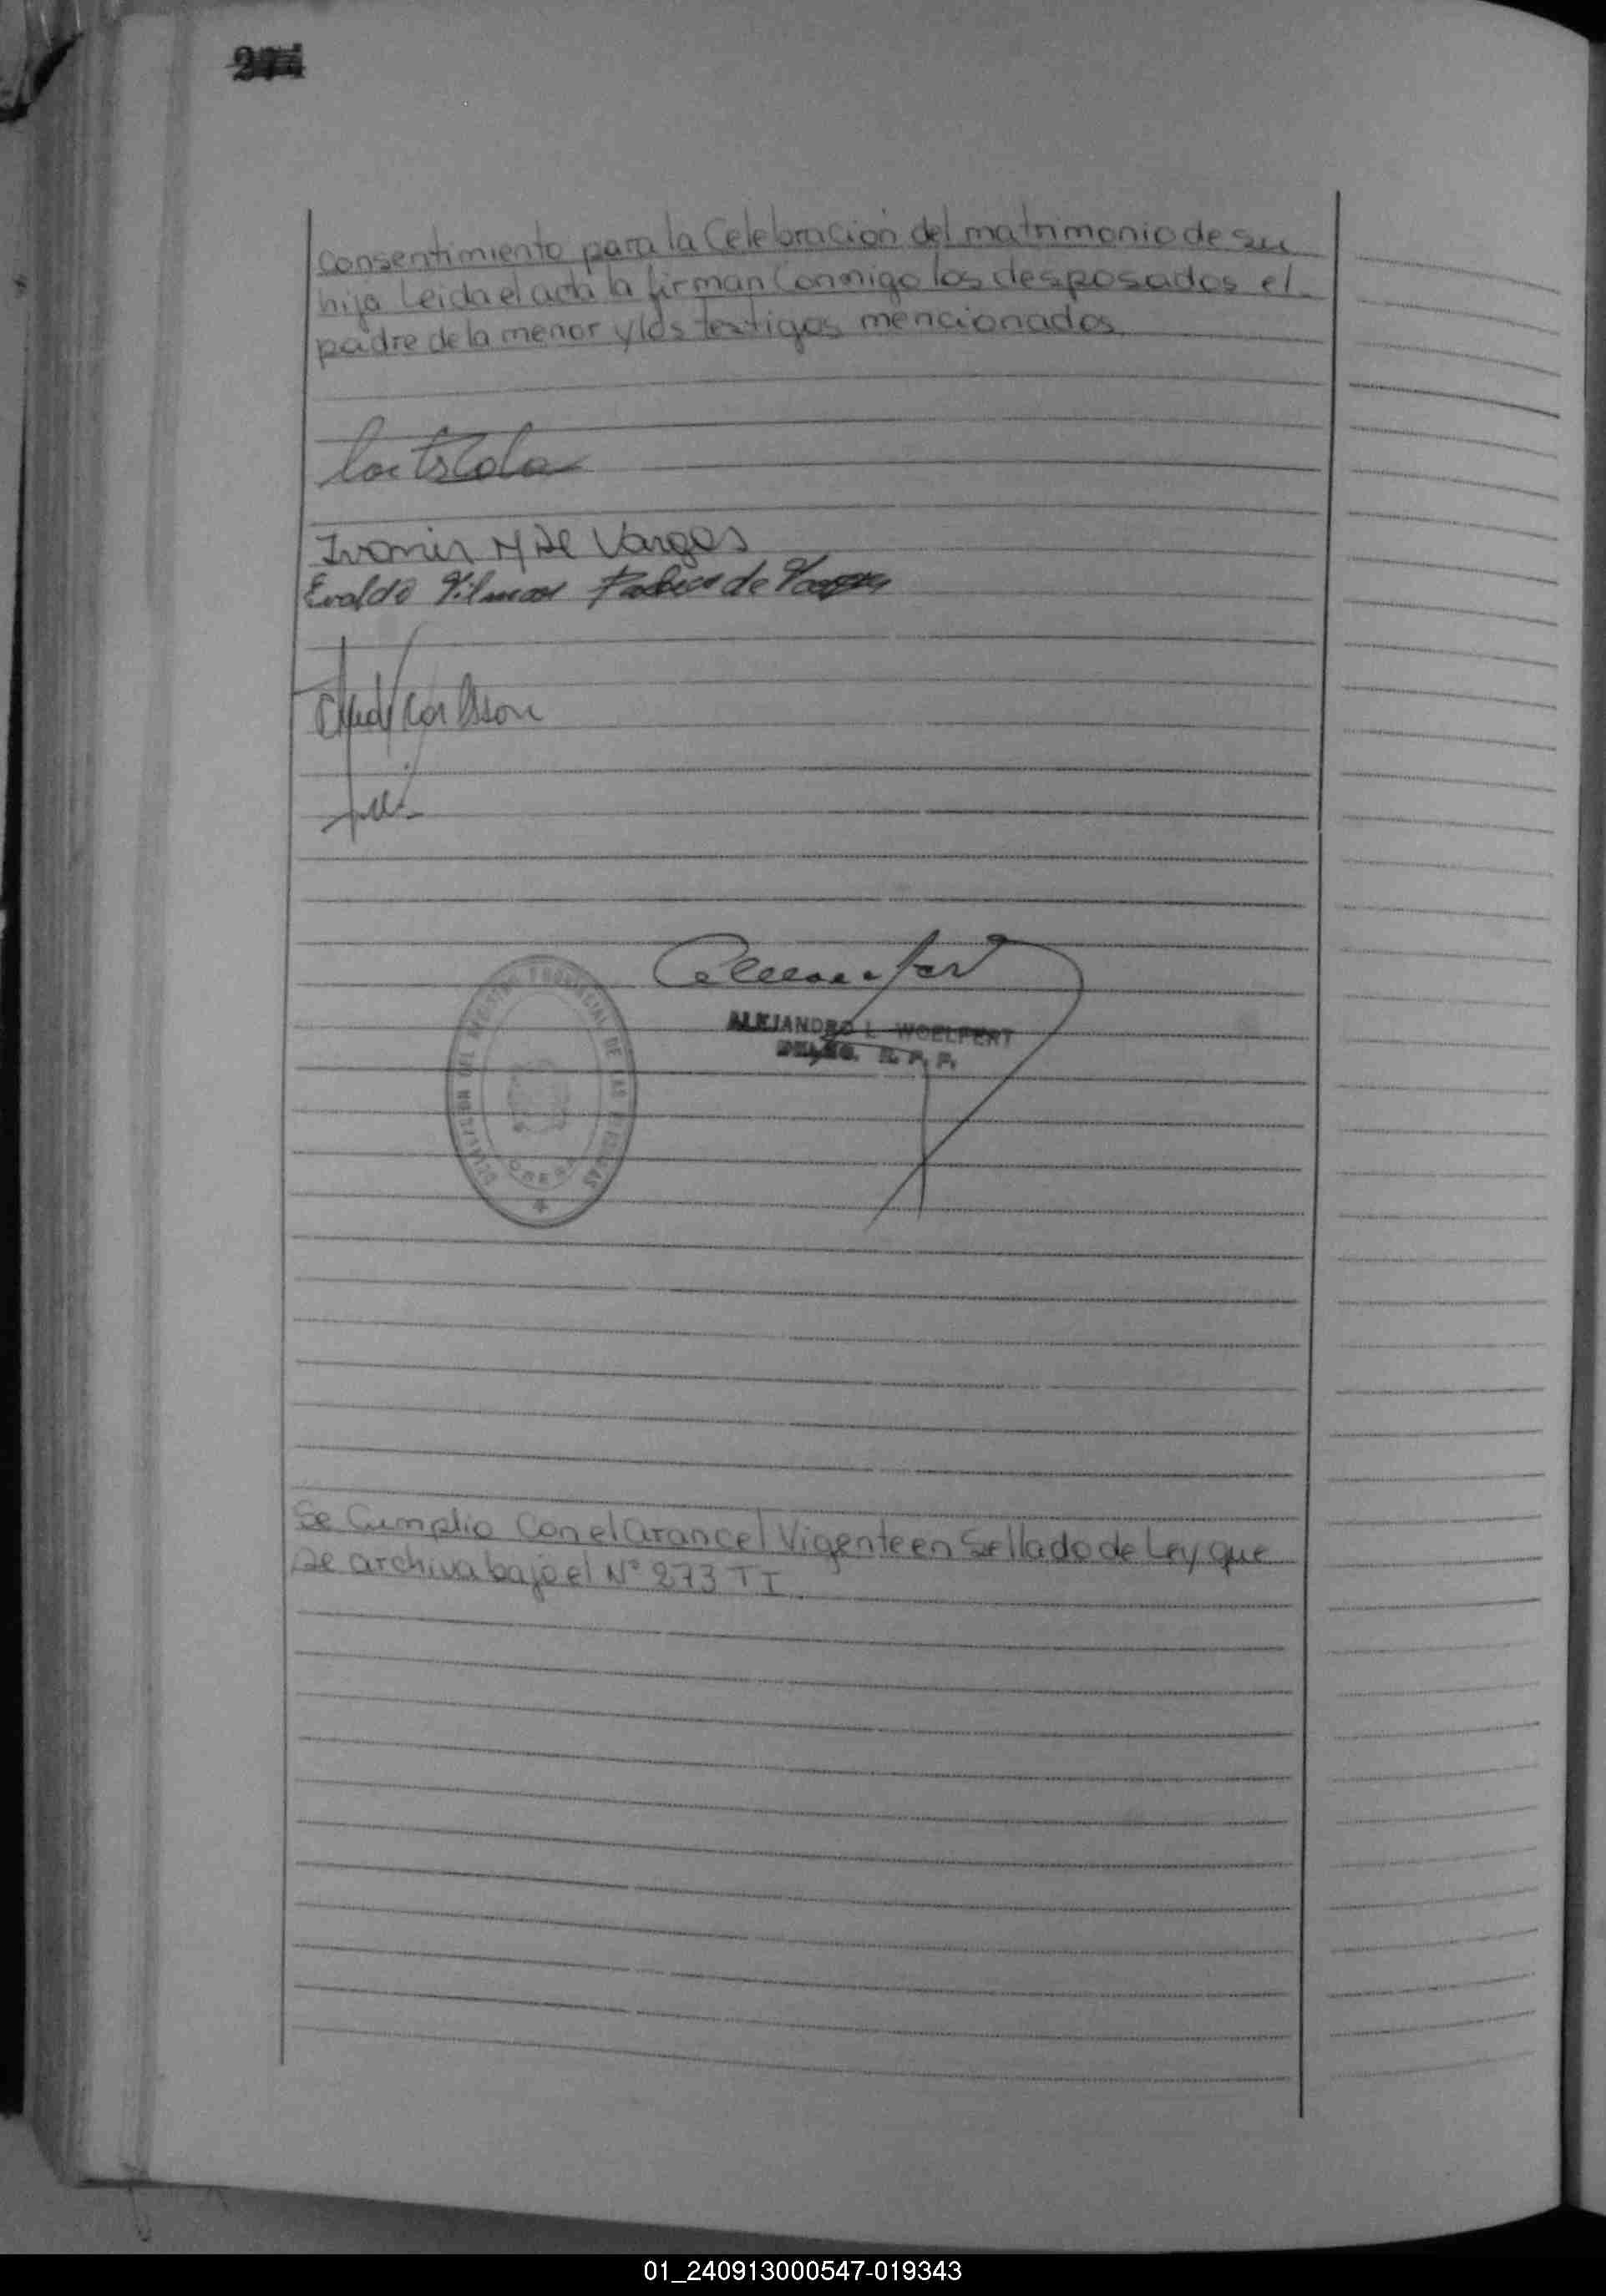 274
Consentimiento para la Celebración del matrimonio de su
hija Leida el acta la firman Conmigo los desposados el
padre de la menor y los testigos mencionados
Ivanir M de Vargas
Evaldo Vilmar de Vargas
Carlsson
ALEJANDRO L. WOELFERT
R. P. P.
DELEGACION DEL REGISTRO PROVINCIAL DE LAS PERSONAS
OBERA
Se Cumplio Con el arancel Vigente en Sellado de Ley que
se archiva bajo el N° 273 T I
01_240913000547-019343